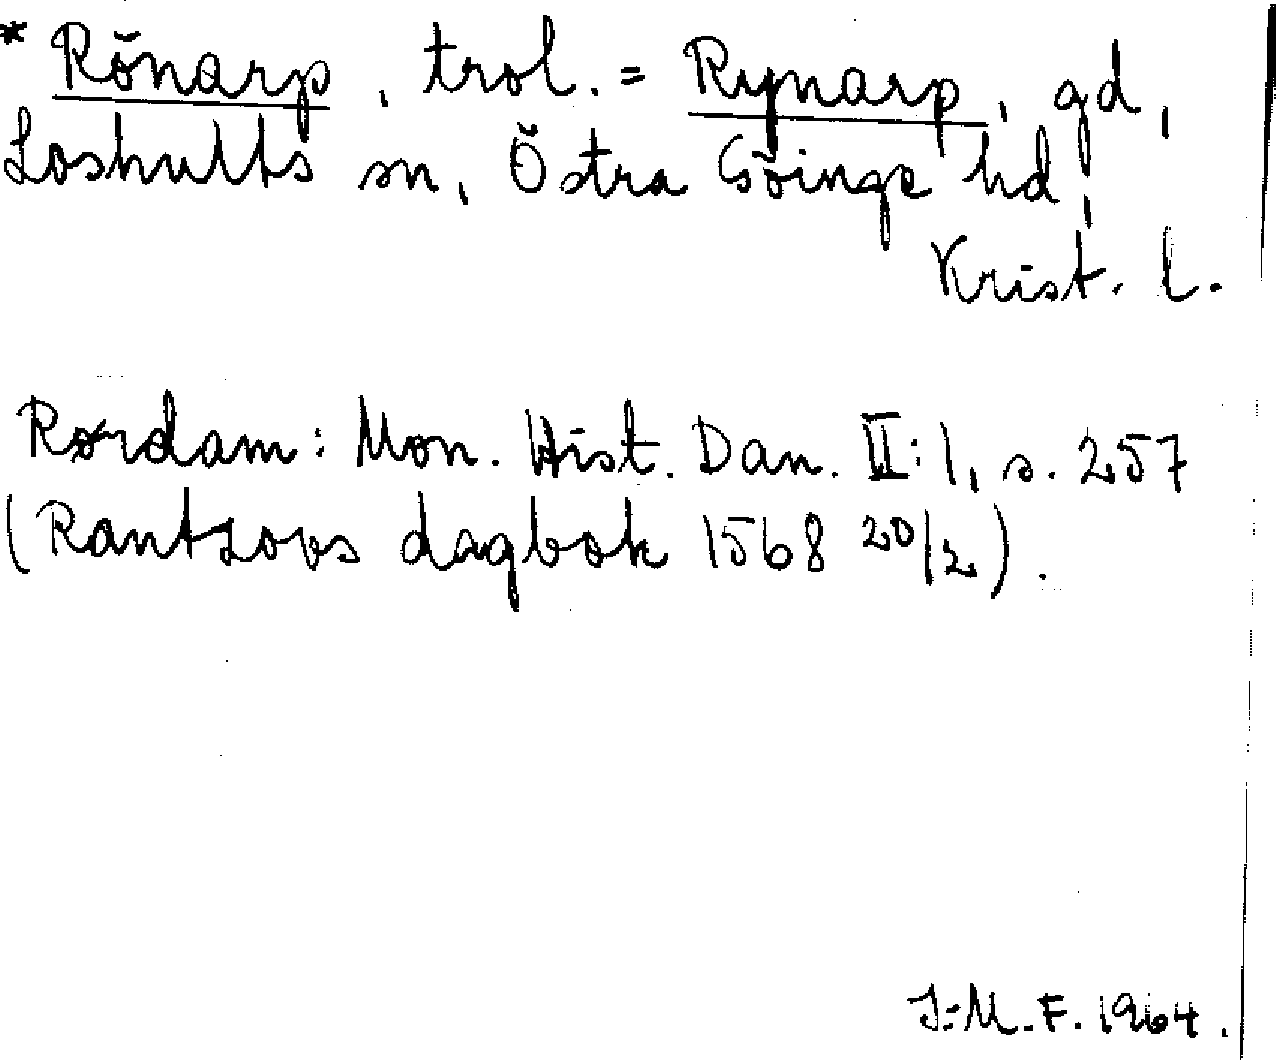 * Rönarp, trol. = Rynarp, gd,
Loshults sn, Östra Göinge hd,
Krist. l.
Rørdam: Mon. Hist. Dan. II:1, s. 257
(Rantzovs dagbok 1568 20/2).
I:M.F. 1964.